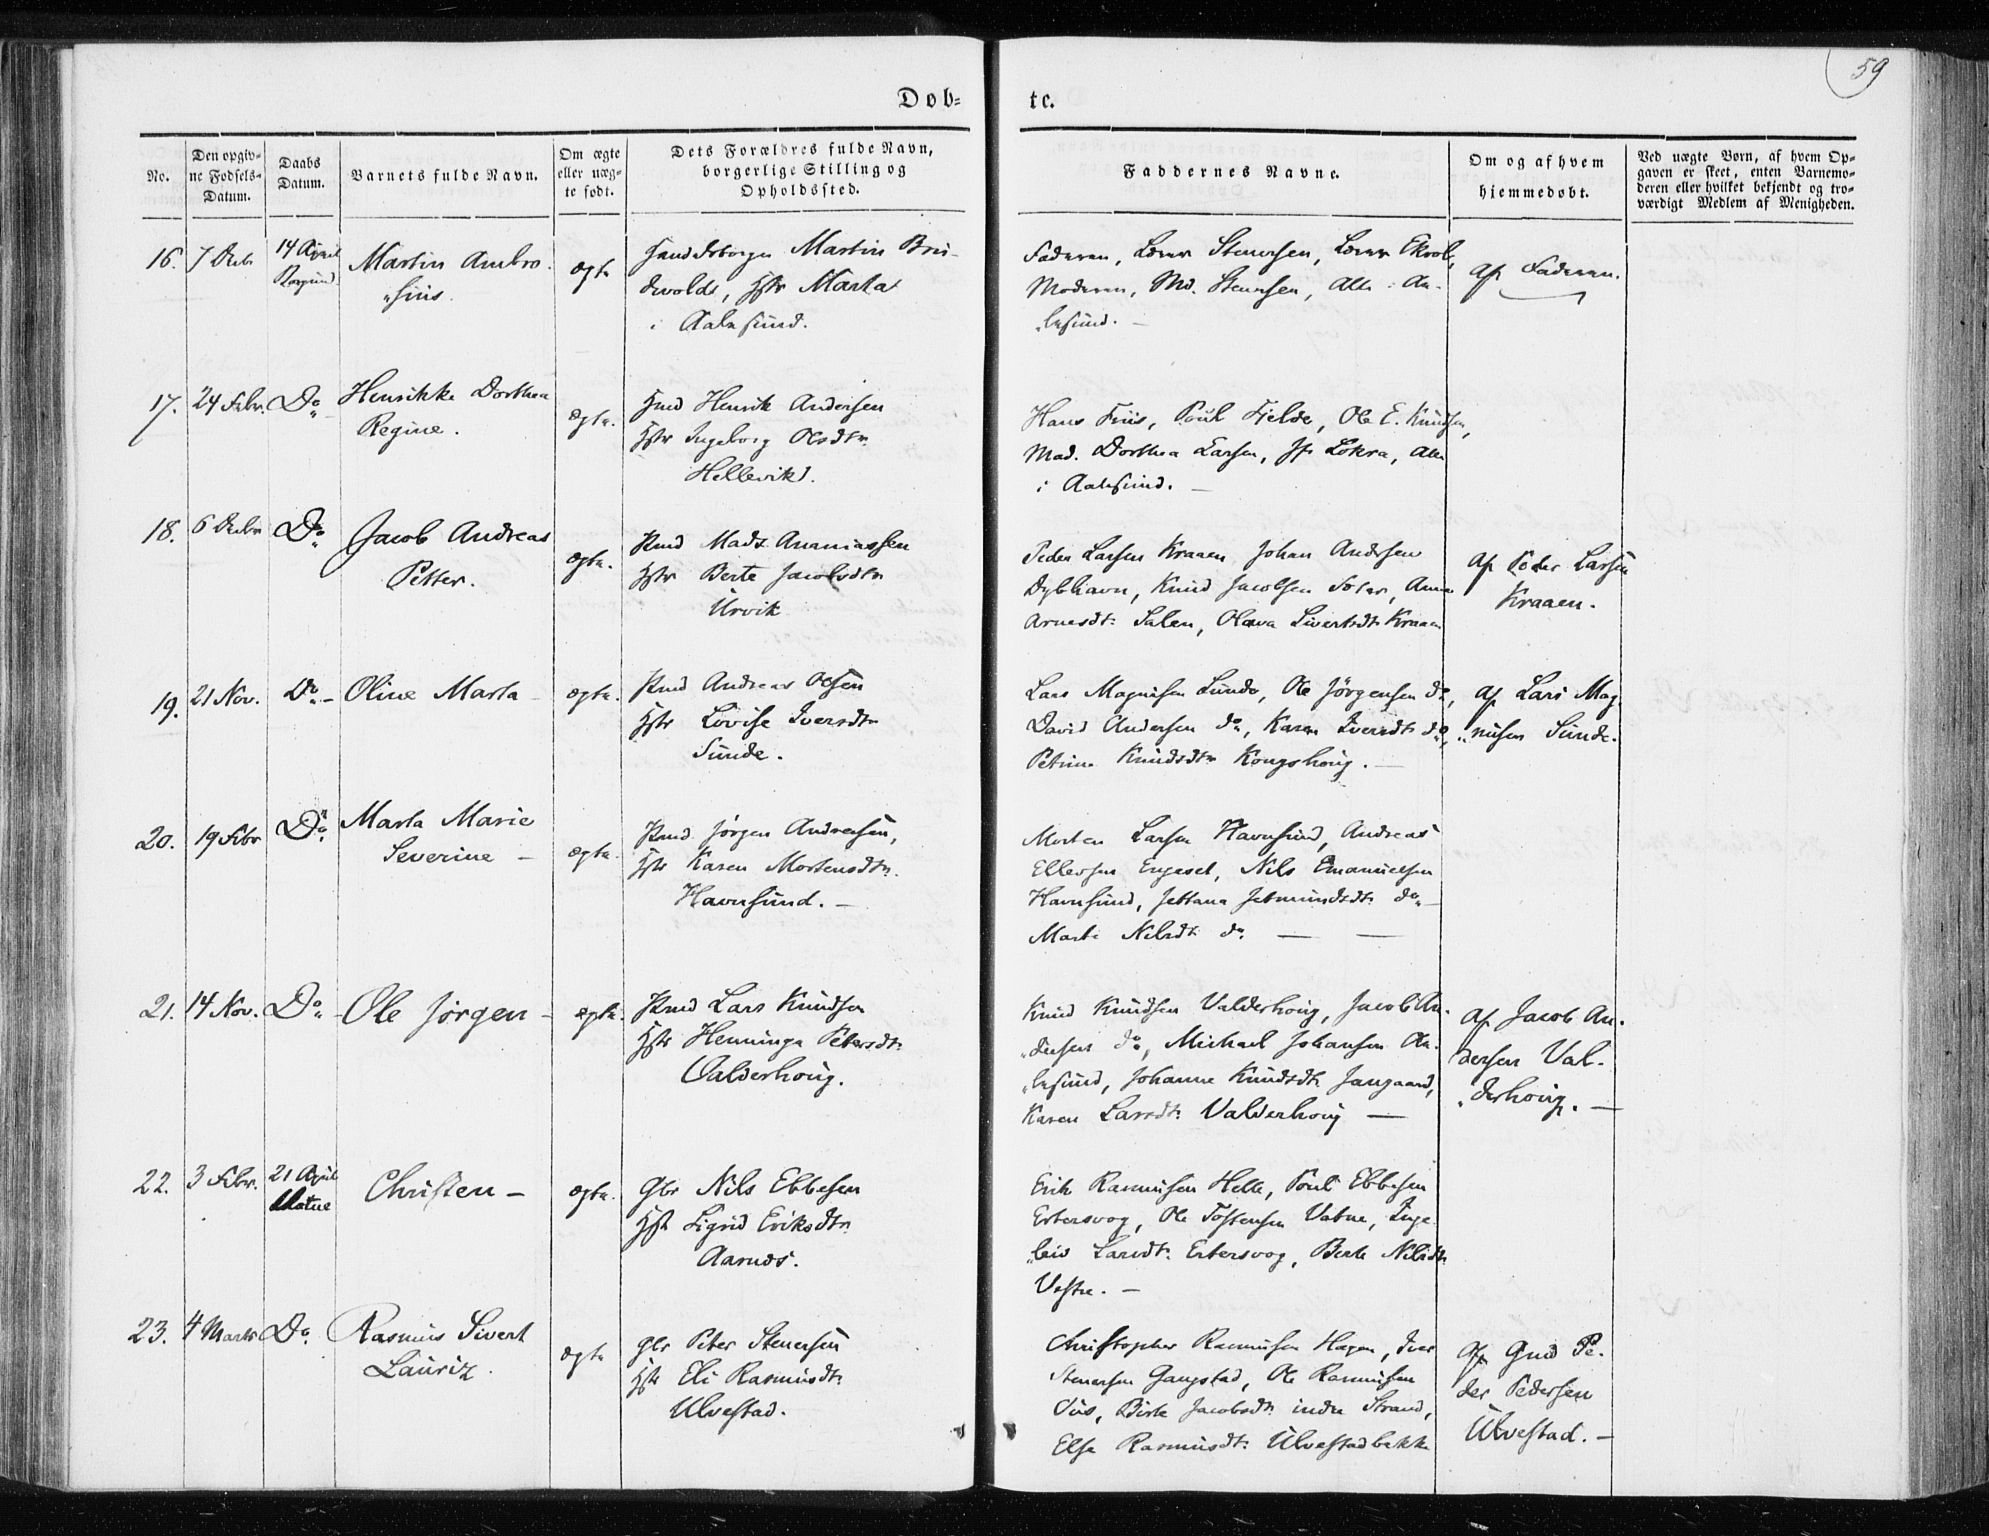 59
Døb-
te.
No.
Den opgiv-
ne Fødsels-
Datum.
Daabs
Datum.
Barnets fulde Navn.
Om ægte
eller uæg-
te født.
Dets Forældres fulde Navn,
borgerlige Stilling og
Opholdssted.
Faddernes Navne.
Om og af hvem
hjemmedøbt.
Ved uægte Børn, af hvem Op-
gaven er skeet, enten Barnemo-
deren eller hvilket bekjendt og tro-
værdigt Medlem af Menigheden.
16.
14 April
Borgund
Martin Ambro-
sius.
ægte
Martin Bru-
devolds, Hstr Marta
i Aalesund.
Faderen, Stenersen, Ekrol,
Moderen, Md. Stenersen, Alle i Aa-
lesund. -
Af Faderen.
17.
24 Febr.
Do
Henrikke Dorthea
Regine.
ægte.
Hmd Henrik Andersen
Hstr Ingeborg Olsdtr
Hellevik.
Hans Friis, Poul Fjelde, Ole E. Knudsen,
Mad. Dorthea Larsen, Jfr Løkra, Alle
i Aalesund. -
18.
6 Decbr
Do
Jacob Andreas
Petter.
ægte.
Hmd Mads Ananiassen
Hstr Berte Jacobsdtr
Urvik
Peder Larsen Kraaen Johan Andersen
Dybhavn, Knud Jacobsen Anne
Arnesdt: Salen, Olava Sivertsdt Kraaen
Af Peder Larsen
Kraaen.
19.
21 Nov.
Do -
Oline Marta
ægte.
Hmd Andreas Olsen
Hstr Lovise Iversdtr
Sunde.
Lars Magnusen Sunde, Ole Jørgensen do,
David Andersen do, Karen Iversdt do,
Petrine Knudsdtr Kongshoug. -
Af Lars Mag-
nusen Sunde.
20.
19 Febr
Do
Marta Marie
Severine -
ægte.
Hmd. Jørgen Andreasen,
Hstr Karen Mortensdtr.
Havnsund. -
Morten Larsen Havnsund, Andreas
Ellevsen Engeset, Nils Emanuelsen
Havnsund, Jettana Jetmundsdt do -
Marte Nilsdt do - -
21.
14 Nov.
Do -
Ole Jørgen -
ægte.
Hmd Lars Knudsen
Hstr Henninga Petersdt:
Valderhoug.
Knud Knudsen Valderhoug, Jacob An-
dersen do, Michael Johansen Aa-
lesund, Johanne Knudsdt Jangaard,
Karen Larsdt: Valderhoug -
Af Jacob An-
dersen Val-
derhoug. -
22.
3 Febr.
21 April
Vatne
Christen -
ægte.
Gbr Nils Ebbesen
Hstr Sigrid Eriksdtr
Aarnes.
Erik Rasmusen Helle, Poul Ebbesen
Ertersvog, Ole Tostensen Vatne, Inge-
leiv Larsdt: Ertersvog, Berte Nilsdt:
Vestre. -
23.
4 Marts
Do.
Rasmus Sivert
Lauritz.
ægte
Gbr Peter Stenersen
Hstr Eli Rasmusdt:
Ulvestad.
Christopher Rasmusen Hagen, Iver
Stenersen Gangstad, Ole Rasmusen
Berte Jacobsdt: indre Strand,
Else Rasmusdt: Ulvestadbakke
Af Gmd Pe-
der Pedersen
Ulvestad. -